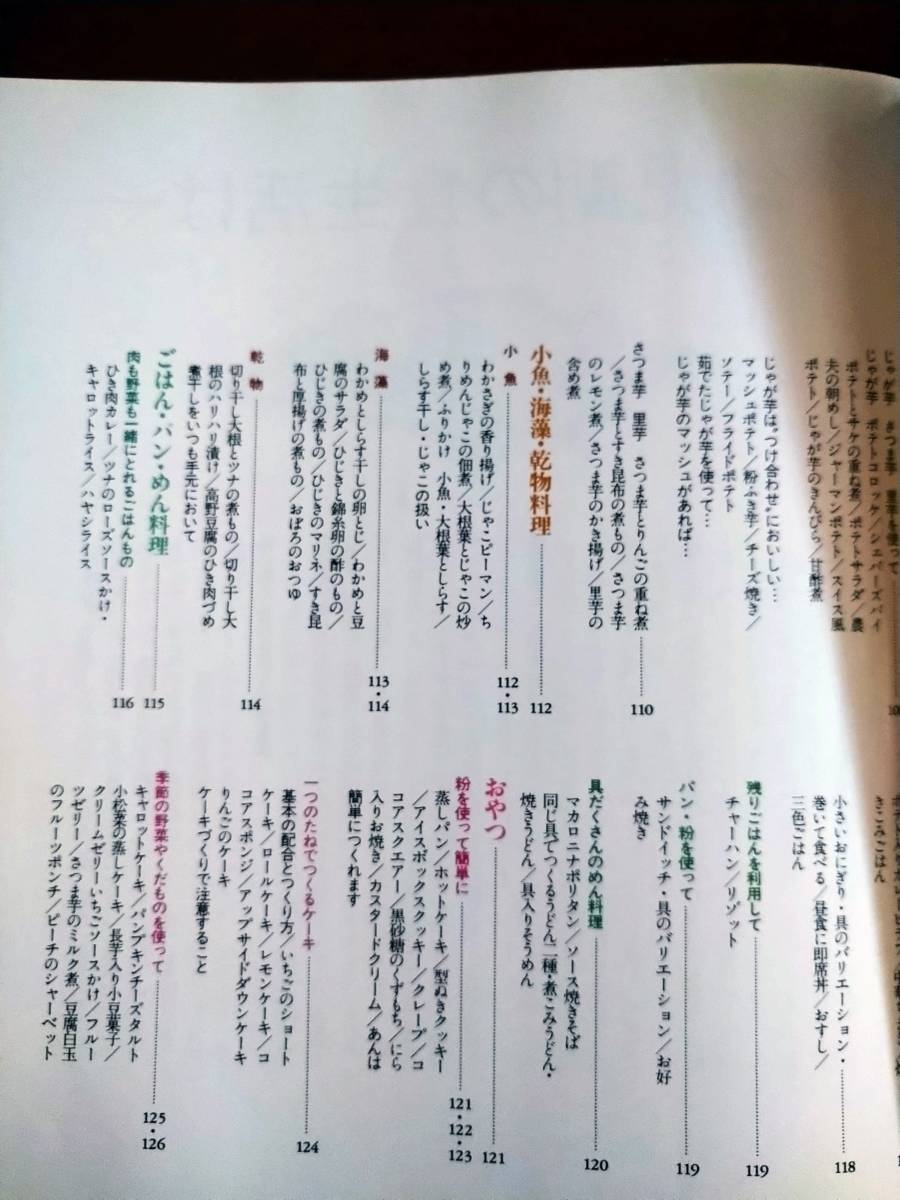 じゃが芋 さつま芋 里芋を使って
じゃが芋 ポテトコロッケ／シェパーズパイ
ポテトとサケの重ね煮／ポテトサラダ／農
夫の朝めし／ジャーマンポテト／スイス風
ポテト／じゃが芋のきんぴら／甘酢煮
じゃが芋は〝つけ合わせ〟においしい…
マッシュポテト／粉ふき芋／チーズ焼き／
ソテー／フライドポテト
茹でたじゃが芋を使って…
じゃが芋のマッシュがあれば…
さつま芋 里芋 さつま芋とりんごの重ね煮 110
／さつま芋とすき昆布の煮もの／さつま芋
のレモン煮／さつま芋のかき揚げ／里芋の
含め煮
小魚・海藻・乾物料理 112
小魚 112・113
わかさぎの香り揚げ／じゃこピーマン／ち
りめんじゃこの佃煮／大根葉とじゃこの炒
め煮／ふりかけ 小魚・大根葉としらす／
しらす干し・じゃこの扱い
海藻 113・114
わかめとしらす干しの卵とじ／わかめと豆
腐のサラダ／ひじきと錦糸卵の酢のもの／
ひじきの煮もの／ひじきのマリネ／すき昆
布と厚揚げの煮もの／おぼろのおつゆ
乾物 114
切り干し大根とツナの煮もの／切り干し大
根のハリハリ漬け／高野豆腐のひき肉づめ
煮干しをいつも手元において
ごはん・パン・めん料理 115
肉も野菜も一緒にとれるごはんもの 116
ひき肉カレー／ツナのローズソースかけ・
キャロットライス／ハヤシライス
きこみごはん
小さいおにぎり・具のバリエーション・ 118
巻いて食べる／昼食に即席丼／おすし／
三色ごはん
残りごはんを利用して 119
チャーハン／リゾット
パン・粉を使って 119
サンドイッチ・具のバリエーション／お好
み焼き
具だくさんのめん料理 120
マカロニナポリタン／ソース焼きそば
同じ具でつくるうどん二種・煮こみうどん・
焼きうどん／具入りそうめん
おやつ 121
粉を使って簡単に 121・122・123
蒸しパン／ホットケーキ／型ぬきクッキー
／アイスボックスクッキー／クレープ／コ
コアスクエアー／黒砂糖のくずもち／にら
入りお焼き／カスタードクリーム／あんは
簡単につくれます
一つのたねでつくるケーキ 124
基本の配合とつくり方／いちごのショート
ケーキ／ロールケーキ／レモンケーキ／コ
コアスポンジ／アップサイドダウンケーキ
りんごのケーキ
ケーキづくりで注意すること
季節の野菜やくだものを使って 125・126
キャロットケーキ／パンプキンチーズタルト
小松菜の蒸しケーキ／長芋入り小豆菓子／
クリームゼリーいちごソースかけ／フルー
ツゼリー／さつま芋のミルク煮／豆腐白玉
のフルーツポンチ／ピーチのシャーベット